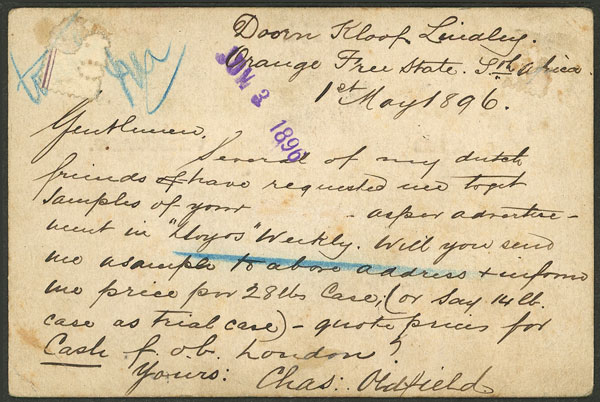 Doorn Kloof Lindley.
Orange Free State. Sth Africa.
1st May 1896.
JUN 2 1896
Gentlemen,
Several of my dutch
friends have requested me to get
samples of your - as per advertise-
ment in "Lloyds" Weekly. Will you send
me a sample to above address + inform
me price per 28lbs Case, (or say 14 lb.
case as trial case) - quote prices for
Cash f. o. b. London?
Yours: Chas: Oldfield